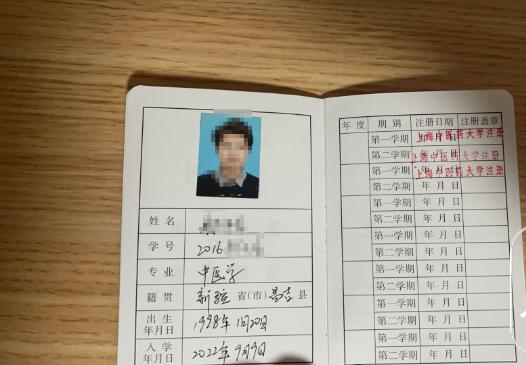 姓名
学号 2016
专业 中医学
籍贯 新疆 省(市) 昌吉 县
出生年月日 1998年 10月20日
入学年月日 2022年 9月9日
年度 期别 注册日期 注册盖章
第一学期 年 月 日 上海中医药大学注册
第二学期 年 月 日 上海中医药大学注册
第一学期 年 月 日 上海中医药大学注册
第二学期 年 月 日
第一学期 年 月 日
第二学期 年 月 日
第一学期 年 月 日
第二学期 年 月 日
第一学期 年 月 日
第二学期 年 月 日
第一学期 年 月 日
第二学期 年 月 日
第一学期 年 月 日
第二学期 年 月 日